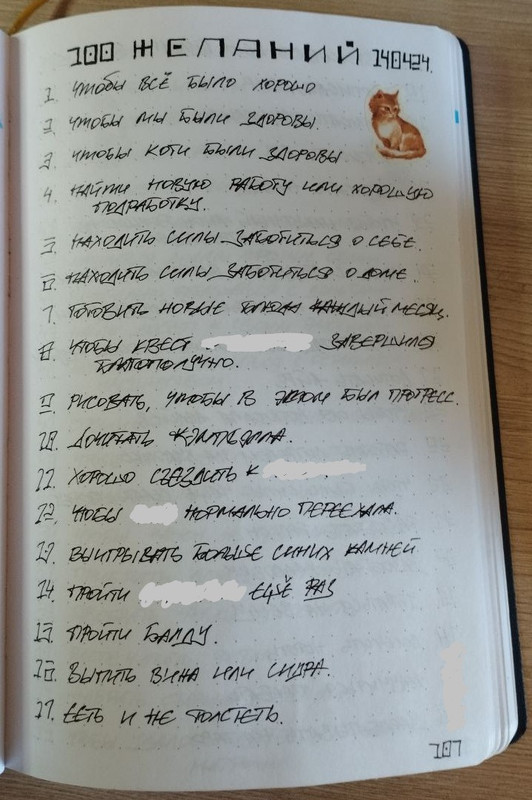 100 ЖЕЛАНИЙ 140424.
1. ЧТОБЫ ВСЁ БЫЛО ХОРОШО
2. ЧТОБЫ МЫ БЫЛИ ЗДОРОВЫ.
3. ЧТОБЫ КОТИ БЫЛИ ЗДОРОВЫ
4. НАЙТИ НОВУЮ РАБОТУ ИЛИ ХОРОШУЮ
ПОДРАБОТКУ.
5. НАХОДИТЬ СИЛЫ ЗАБОТИТЬСЯ О СЕБЕ.
6. НАХОДИТЬ СИЛЫ ЗАБОТИТЬСЯ О ДОМЕ.
7. ГОТОВИТЬ НОВЫЕ БЛЮДА КАЖДЫЙ МЕСЯЦ.
8. ЧТОБЫ КВЕСТ ЗАВЕРШИЛСЯ
БЛАГОПОЛУЧНО.
9. РИСОВАТЬ, ЧТОБЫ В ЭТОМ БЫЛ ПРОГРЕСС.
10. ДОЧИТАТЬ КЭМПБЕЛЛА.
11. ХОРОШО СЪЕЗДИТЬ К
12. ЧТОБЫ НОРМАЛЬНО ПЕРЕЕХАЛА.
13. ВЫИГРЫВАТЬ БОЛЬШЕ СИНИХ КАМНЕЙ
14. ПРОЙТИ ЕЩЁ РАЗ
15. ПРОЙТИ БАЛДУ.
16. ВЫПИТЬ ВИНА ИЛИ СИДРА.
17. ЕСТЬ И НЕ ТОЛСТЕТЬ.
107